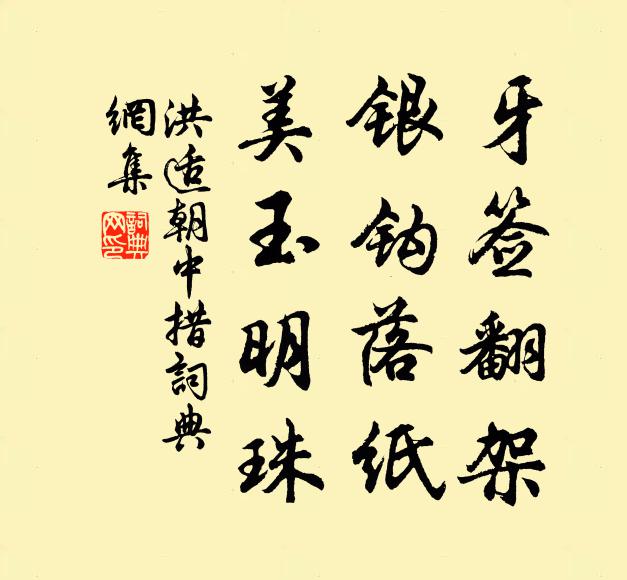 牙签翻架
银钩落纸
美玉明珠
洪适朝中措詞典
網集
詞典
网印